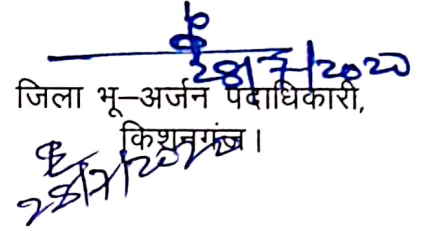 28/7/2020
जिला भू-अर्जन पदाधिकारी,
किशनगंज।
28/7/2020